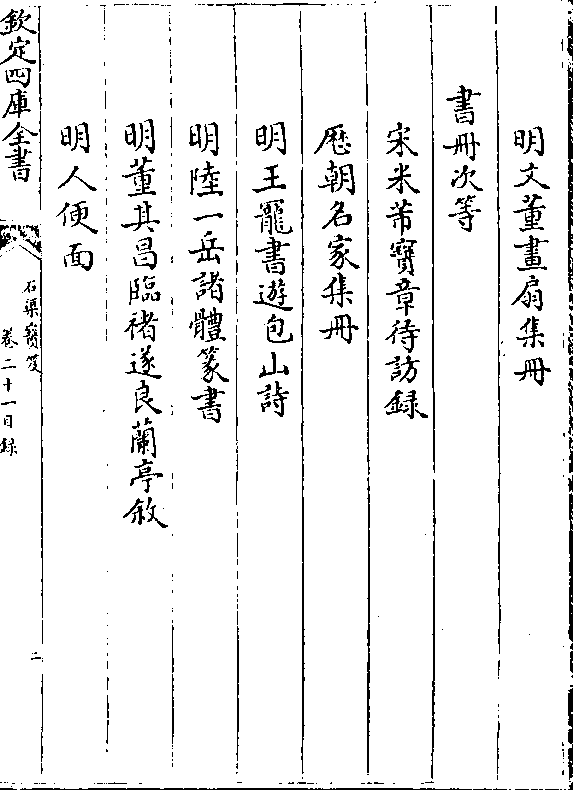 明文董畫扇集冊
書冊次等
宋米芾寶章待訪録
歴朝名家集冊
明王寵書遊包山詩
明陸一岳諸體篆書
明董其昌臨褚遂良蘭亭敘
明人便面
欽定四庫全書
石渠寶笈
卷二十一目録
二